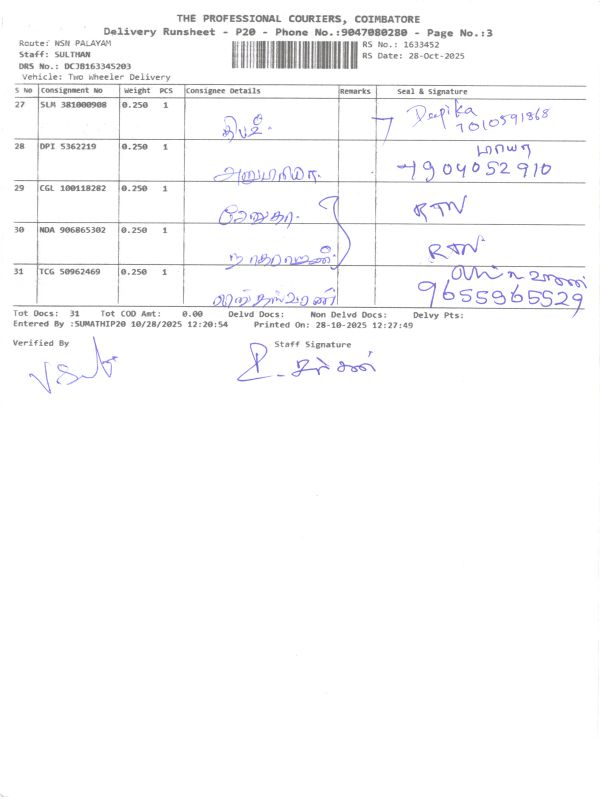 THE PROFESSIONAL COURIERS, COIMBATORE
Delivery Runsheet - P20 - Phone No.:9047080280 - Page No.:3
Route: NSN PALAYAM
RS No.: 1633452
Staff: SULTHAN
RS Date: 28-Oct-2025
DRS No.: DCJB163345203
Vehicle: Two Wheeler Delivery
S No Consignment No Weight PCS Consignee Details Remarks Seal & Signature
27 SLM 381000908 0.250 1 Deepika
7010591868
28 DPI 5362219 0.250 1
4904052910
29 CGL 100118282 0.250 1 RTN
30 NDA 906865302 0.250 1 RTN
31 TCG 50962469 0.250 1
9655965529
Tot Docs: 31 Tot COD Amt: 0.00 Delvd Docs: Non Delvd Docs: Delvy Pts:
Entered By :SUMATHIP20 10/28/2025 12:20:54 Printed On: 28-10-2025 12:27:49
Verified By Staff Signature